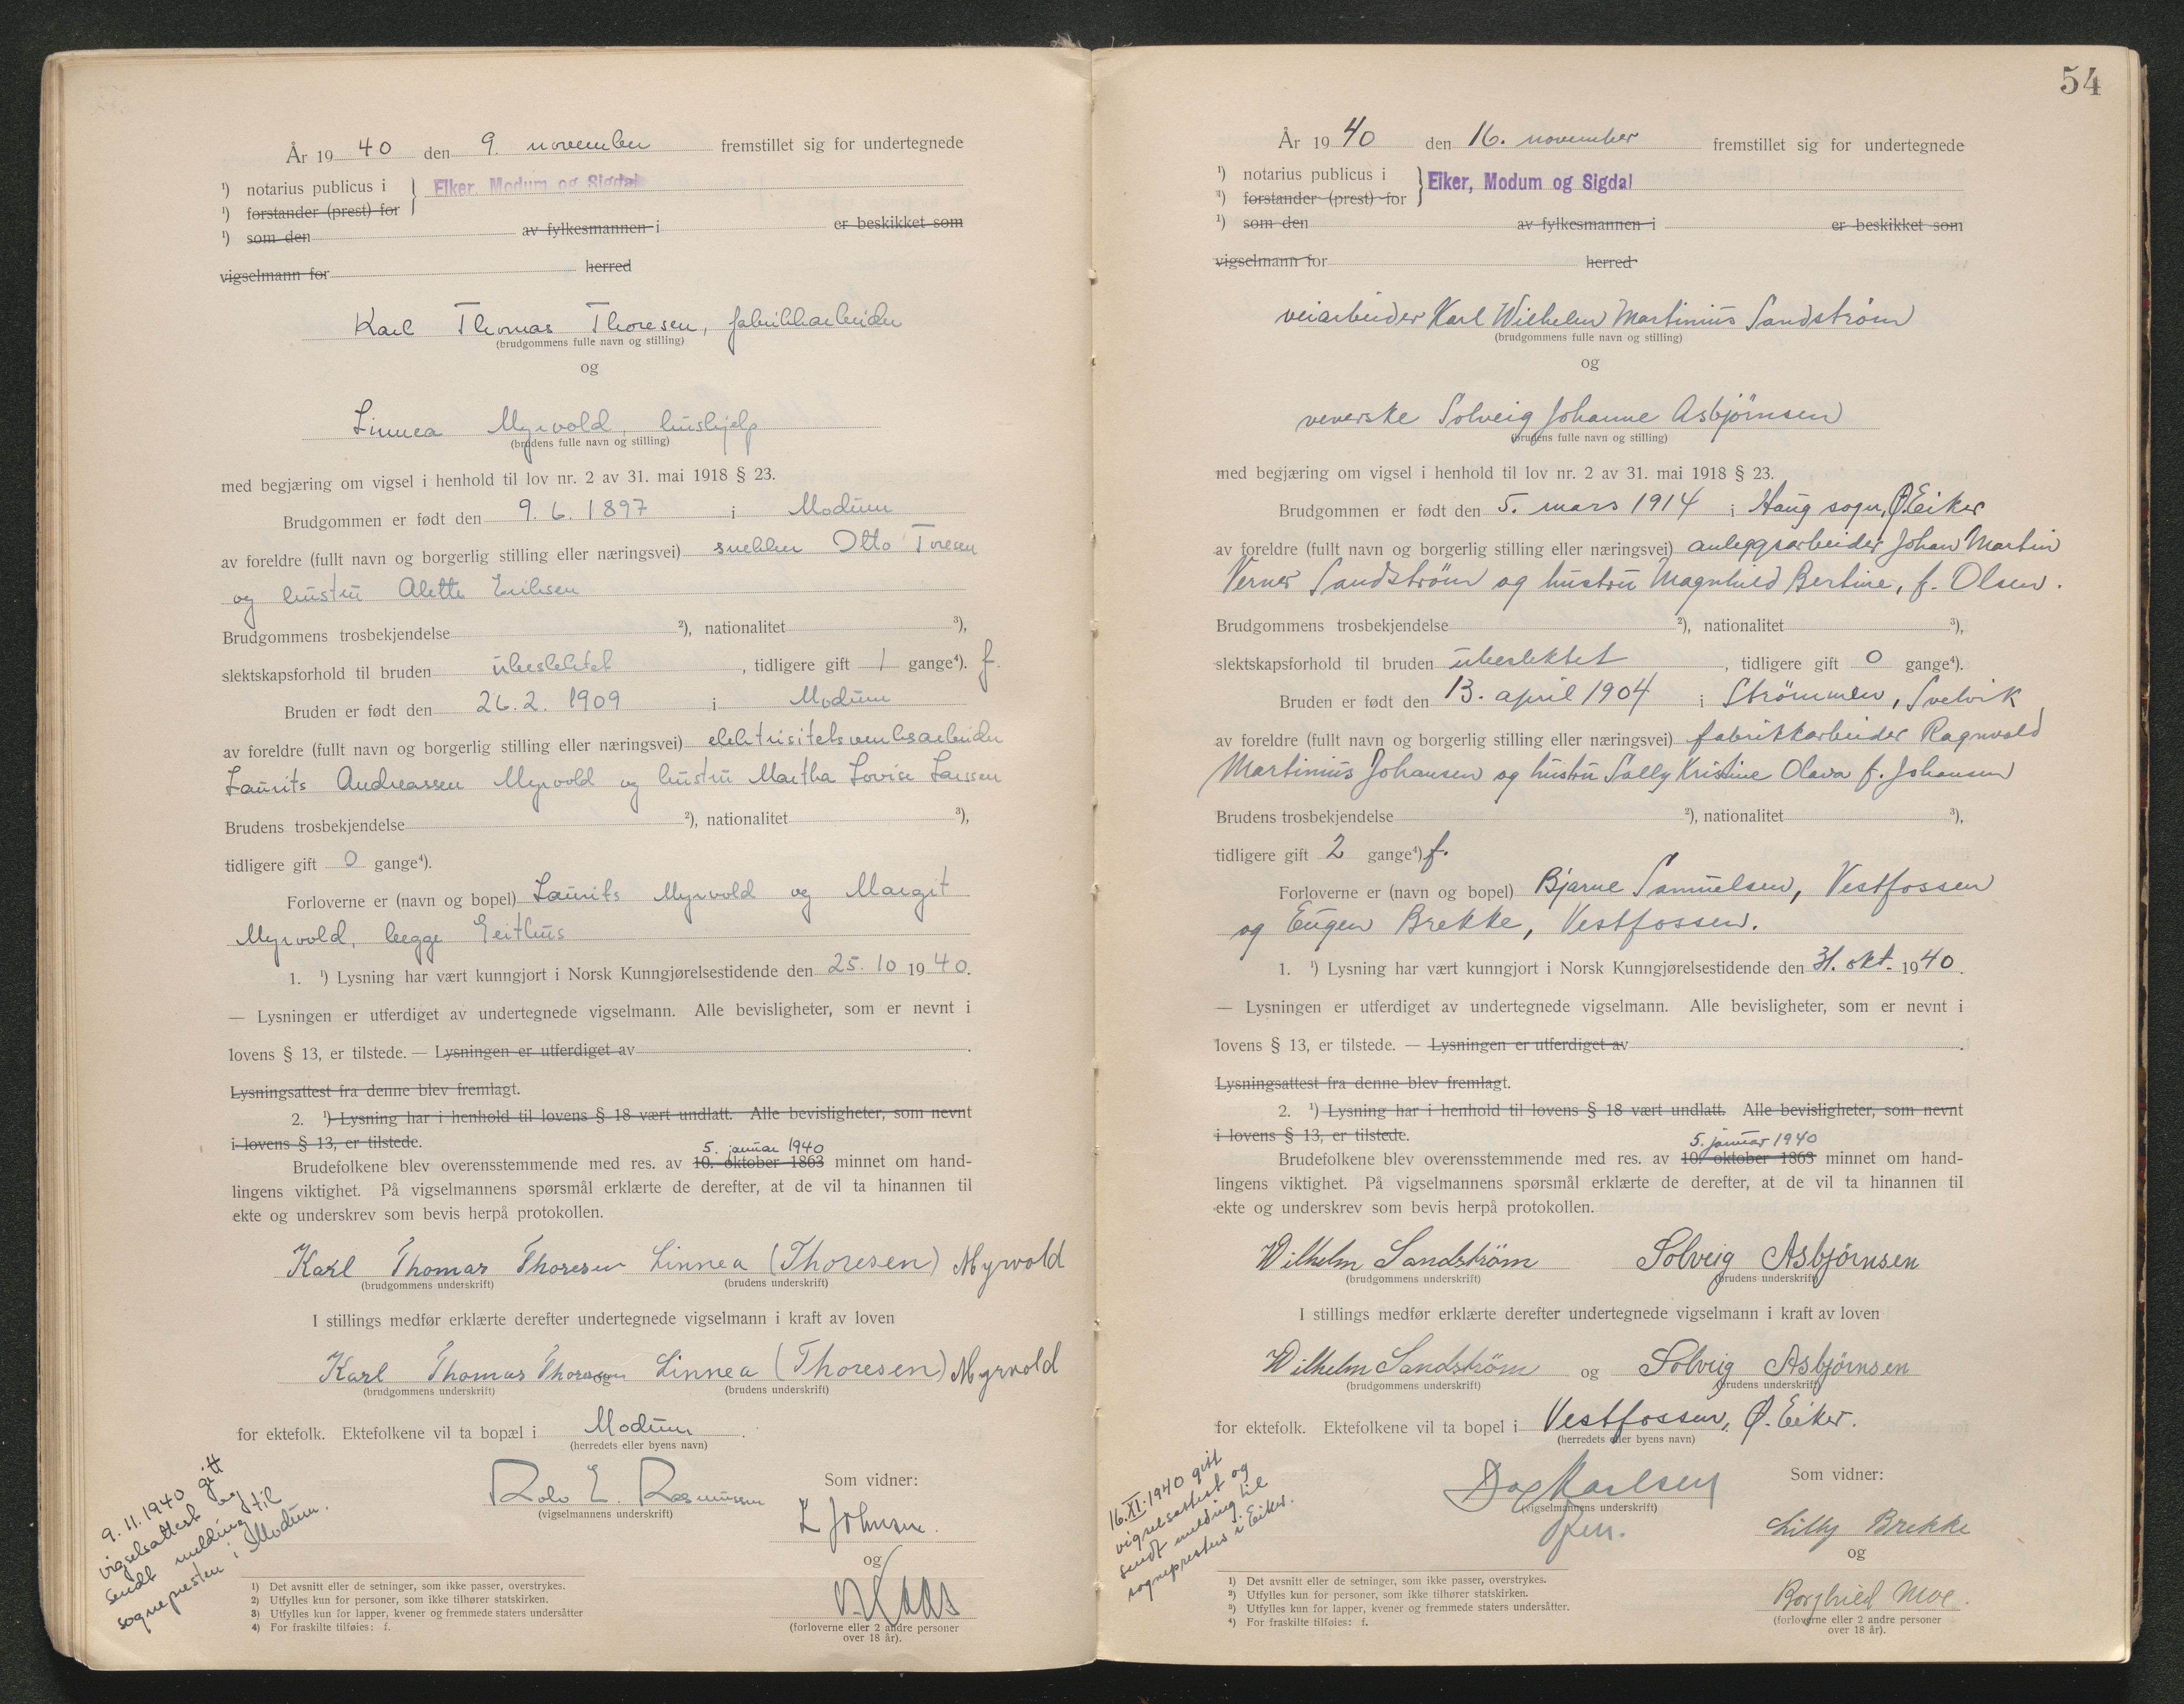 År 19 40 den 9. november fremstillet sig for undertegnede
¹) notarius publicus i } Eiker, Modum og Sigdal
¹) forstander (prest) for
¹) som den av fylkesmannen i er beskikket som
vigselmann for herred
Karl Thomas Thoresen, fabrikkarbeider
(brudgommens fulle navn og stilling)
og
Linnea Myrvold, hushjelp
(brudens fulle navn og stilling)
med begjæring om vigsel i henhold til lov nr. 2 av 31. mai 1918 § 23.
Brudgommen er født den 9. 6. 1897 i Modum
av foreldre (fullt navn og borgerlig stilling eller næringsvei) snekker Otto Toresen
og hustru Alette Eriksen
Brudgommens trosbekjendelse ²), nationalitet ³),
slektskapsforhold til bruden ubeslektet, tidligere gift 1 gange⁴). f.
Bruden er født den 26. 2. 1909 i Modum
av foreldre (fullt navn og borgerlig stilling eller næringsvei) elektrisitetsverksarbeider
Laurits Andreassen Myrvold og hustru Martha Lovise Larsen
Brudens trosbekjendelse ²), nationalitet ³),
tidligere gift 0 gange⁴).
Forloverne er (navn og bopel) Laurits Myrvold og Margit
Myrvold, begge Geithus
1. ¹) Lysning har vært kunngjort i Norsk Kunngjørelsestidende den 25. 10 19 40.
— Lysningen er utferdiget av undertegnede vigselmann. Alle bevisligheter, som er nevnt i
lovens § 13, er tilstede. — Lysningen er utferdiget av .
Lysningsattest fra denne blev fremlagt.
2. ¹) Lysning har i henhold til lovens § 18 vært undlatt. Alle bevisligheter, som nevnt
i lovens § 13, er tilstede.
5. januar 1940
Brudefolkene blev overensstemmende med res. av 10. oktober 1863 minnet om hand-
lingens viktighet. På vigselmannens spørsmål erklærte de derefter, at de vil ta hinannen til
ekte og underskrev som bevis herpå protokollen.
Karl Thomas Thoresen Linnea (Thoresen) Myrvold
(brudgommens underskrift) (brudens underskrift)
I stillings medfør erklærte derefter undertegnede vigselmann i kraft av loven
Karl Thomas Thoresen og Linnea (Thoresen) Myrvold
(brudgommens underskrift) (brudens underskrift)
for ektefolk. Ektefolkene vil ta bopæl i Modum.
(herredets eller byens navn)
Som vidner:
Rolv E. Rasmussen
(vigselmannens underskrift)
L Johnsen.
og
(forloverne eller 2 andre personer
over 18 år).
9. 11. 1940 gitt
vigselsattest og
sendt melding til
sognepresten i Modum.
1) Det avsnitt eller de setninger, som ikke passer, overstrykes.
2) Utfylles kun for personer, som ikke tilhører statskirken.
3) Utfylles kun for lapper, kvener og fremmede staters undersåtter
4) For fraskilte tilføies: f.
54
År 19 40 den 16. november fremstillet sig for undertegnede
¹) notarius publicus i } Eiker, Modum og Sigdal
¹) forstander (prest) for
¹) som den av fylkesmannen i er beskikket som
vigselmann for herred
veiarbeider Karl Wilhelm Martinius Sandstrøm
(brudgommens fulle navn og stilling)
og
veverske Solveig Johanne Asbjørnsen
(brudens fulle navn og stilling)
med begjæring om vigsel i henhold til lov nr. 2 av 31. mai 1918 § 23.
Brudgommen er født den 5. mars 1914 i Haug sogn, Ø. Eiker
av foreldre (fullt navn og borgerlig stilling eller næringsvei) anleggsarbeider Johan Martin
Verner Sandstrøm og hustru Magnhild Bertine, f. Olsen.
Brudgommens trosbekjendelse ²), nationalitet ³),
slektskapsforhold til bruden ubeslektet, tidligere gift 0 gange⁴).
Bruden er født den 13. april 1904 i Strømmen, Svelvik
av foreldre (fullt navn og borgerlig stilling eller næringsvei) fabrikkarbeider Ragnvald
Martinius Johansen og hustru Sally Kristine Olava f. Johansen
Brudens trosbekjendelse ²), nationalitet ³),
tidligere gift 2 gange⁴) f.
Forloverne er (navn og bopel) Bjarne Samuelsen, Vestfossen
og Eugen Brekke, Vestfossen.
1. ¹) Lysning har vært kunngjort i Norsk Kunngjørelsestidende den 31. okt. 19 40.
— Lysningen er utferdiget av undertegnede vigselmann. Alle bevisligheter, som er nevnt i
lovens § 13, er tilstede. — Lysningen er utferdiget av .
Lysningsattest fra denne blev fremlagt.
2. ¹) Lysning har i henhold til lovens § 18 vært undlatt. Alle bevisligheter, som nevnt
i lovens § 13, er tilstede.
5. januar 1940
Brudefolkene blev overensstemmende med res. av 10. oktober 1863 minnet om hand-
lingens viktighet. På vigselmannens spørsmål erklærte de derefter, at de vil ta hinannen til
ekte og underskrev som bevis herpå protokollen.
Wilhelm Sandstrøm Solveig Asbjørnsen
(brudgommens underskrift) (brudens underskrift)
I stillings medfør erklærte derefter undertegnede vigselmann i kraft av loven
Wilhelm Sandstrøm og Solveig Asbjørnsen
(brudgommens underskrift) (brudens underskrift)
for ektefolk. Ektefolkene vil ta bopel i Vestfossen, Ø. Eiker.
(herredets eller byens navn)
Som vidner:
Dag Karlsen
(vigselmannens underskrift)
Lilly Brekke
og
Borghild Moe.
(forloverne eller 2 andre personer
over 18 år).
16. XI. 1940 gitt
vigselsattest og
sendt melding til
sognepresten i Eiker.
1) Det avsnitt eller de setninger, som ikke passer, overstrykes.
2) Utfylles kun for personer, som ikke tilhører statskirken.
3) Utfylles kun for lapper, kvener og fremmede staters undersåtter.
4) For fraskilte tilføies: f.